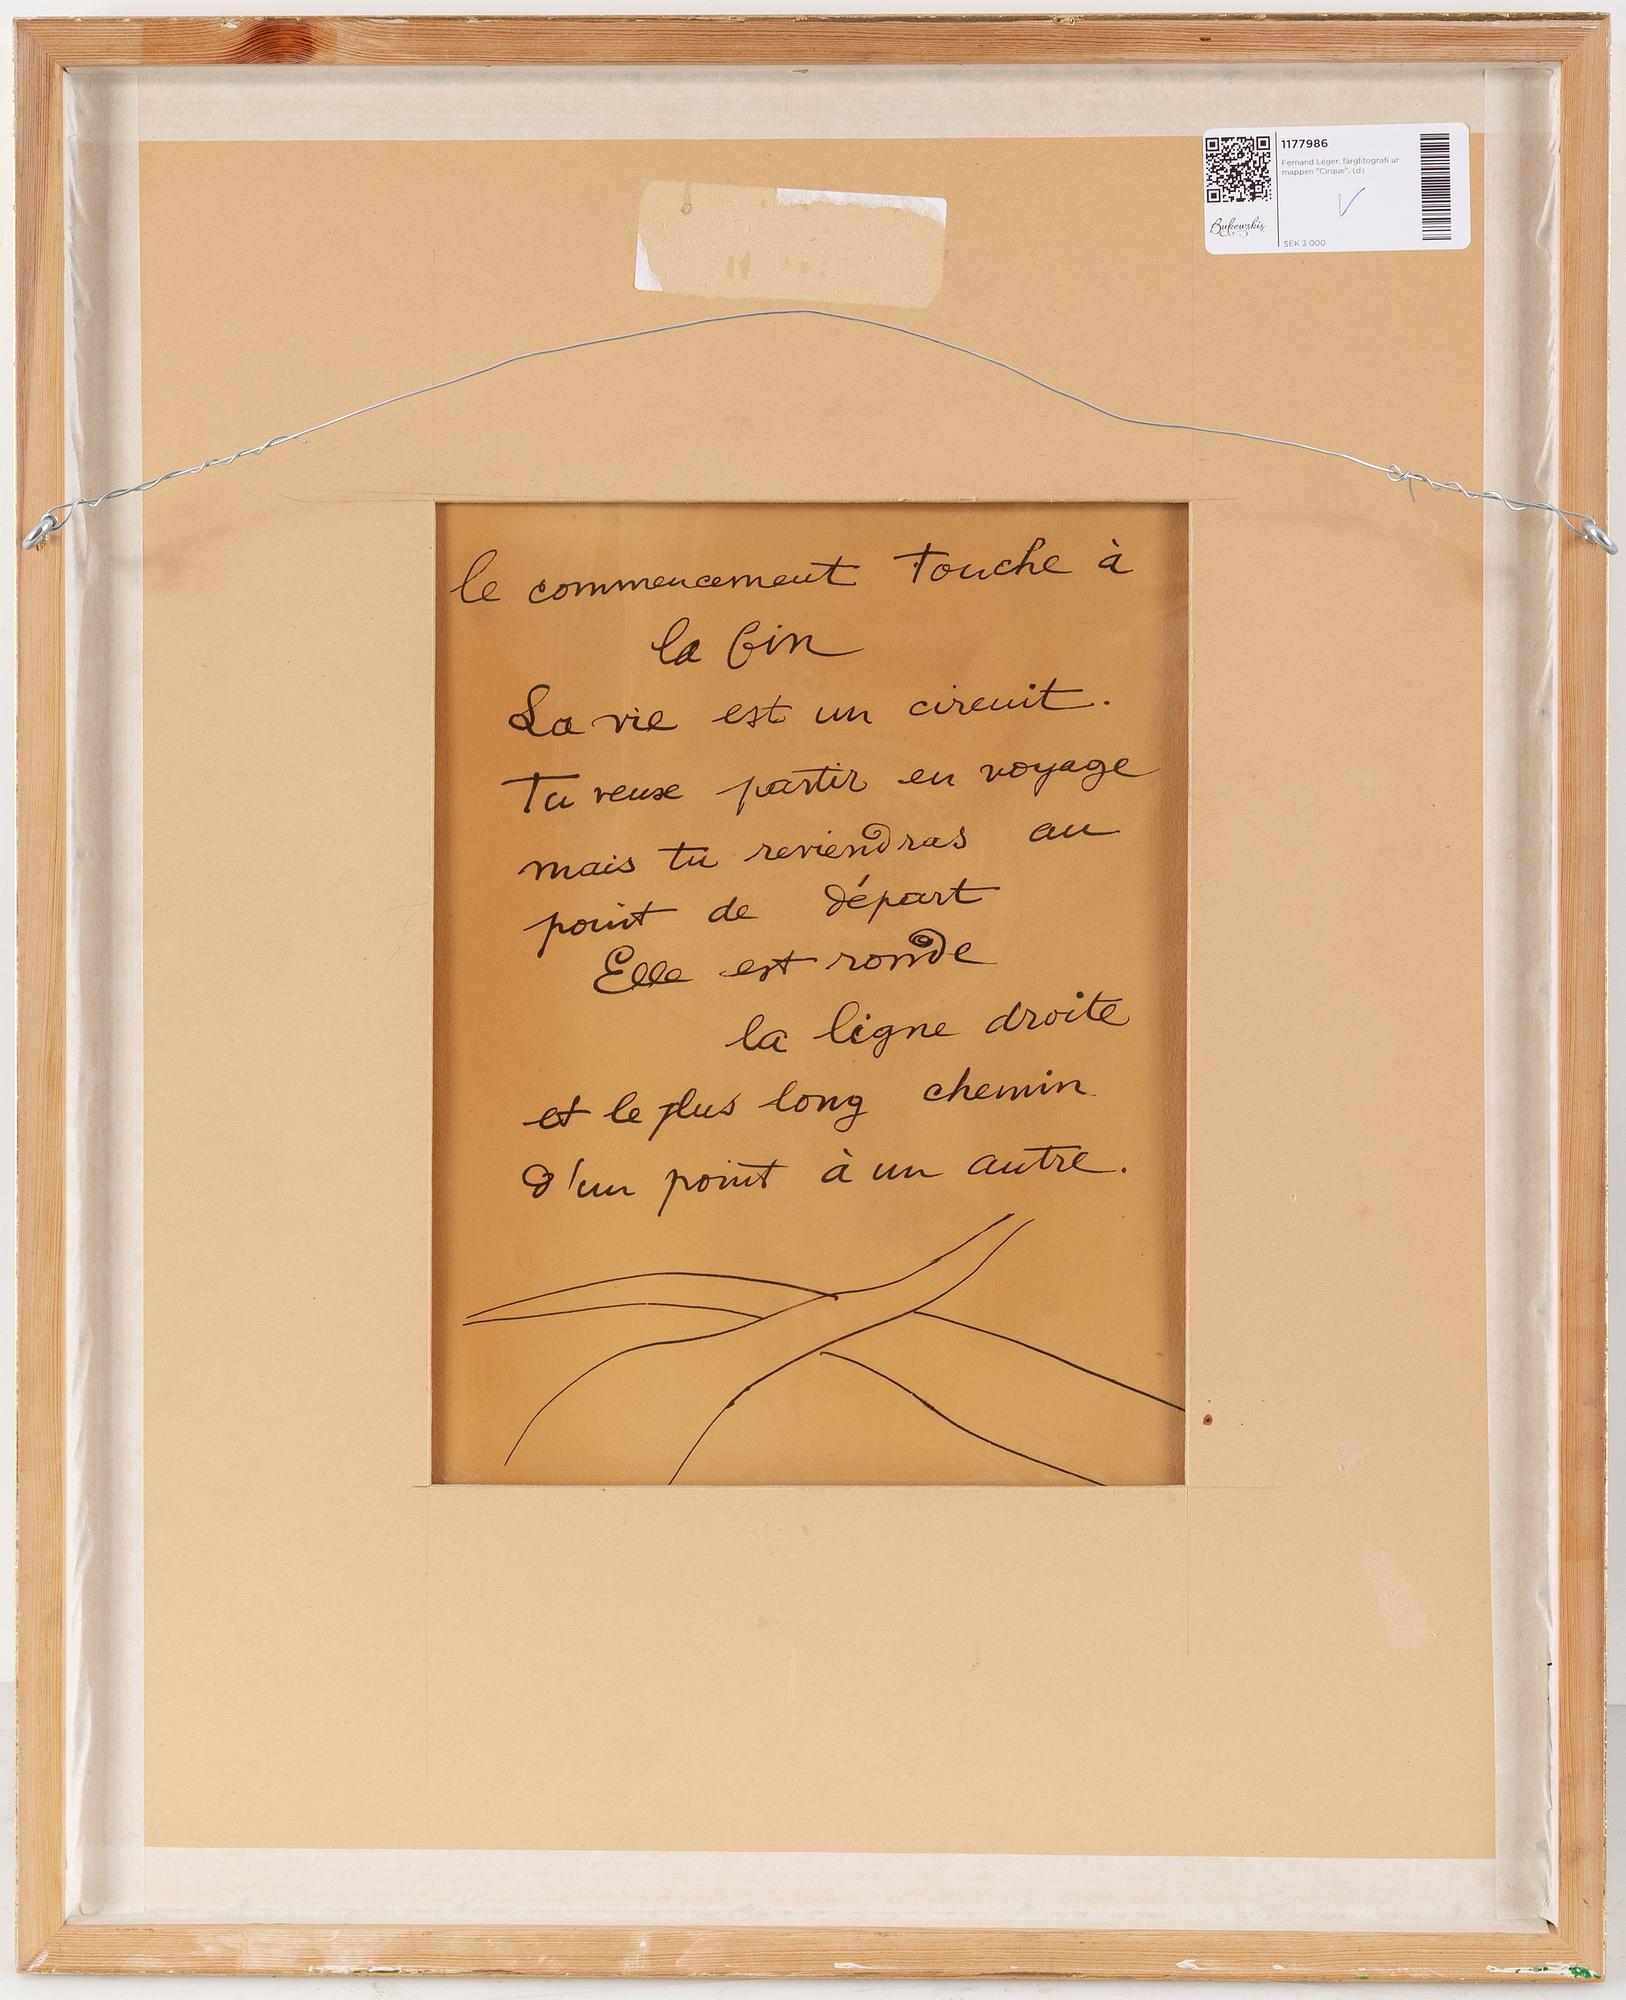 1177986
Fernand Léger, färglitografi ur
mappen "Cirque". (d)
Bukowskis
SEK 3 000
le commencement touche à
la fin
La vie est un circuit.
Tu veux partir en voyage
mais tu reviendras au
point de départ
Elle est ronde
la ligne droite
et le plus long chemin
d'un point à un autre.